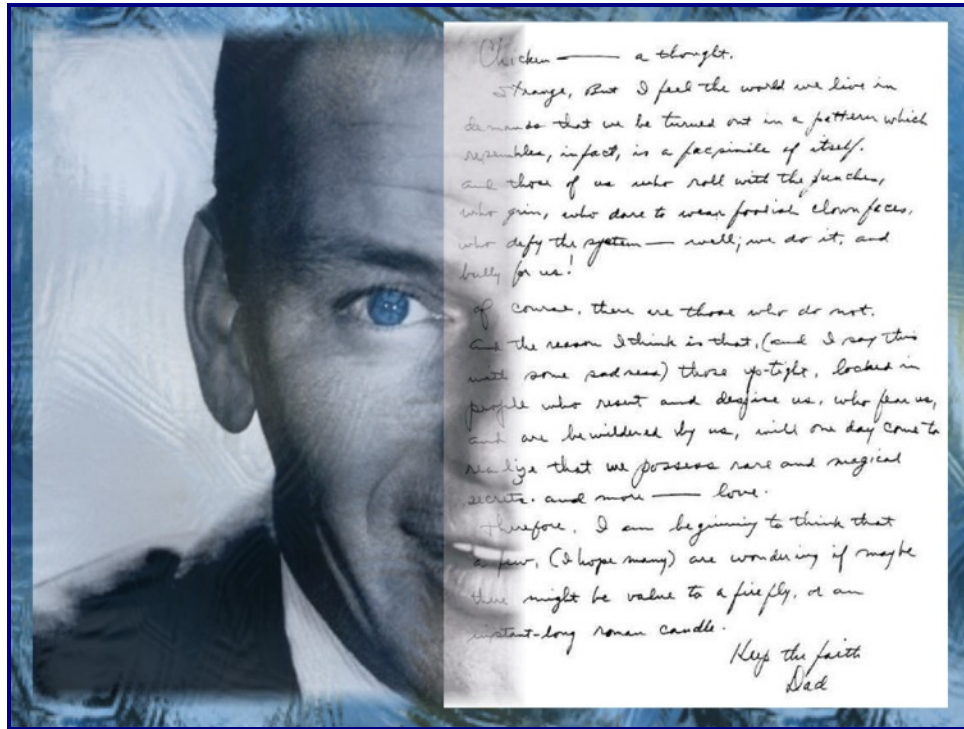 Chicken — a thought.
Strange, But I feel the world we live in
demands that we be turned out in a pattern which
resembles, in fact, is a facsimile of itself.
and those of us who roll with the punches,
who grin, who dare to wear foolish clown faces,
who defy the system — well, we do it, and
bully for us!
Of course, there are those who do not.
And the reason I think is that, (and I say this
with some sadness) those up-tight, locked in
people who resent and despise us, who fear us,
and are bewildered by us, will one day come to
realize that we possess rare and magical
secrets. and more — love.
Therefore, I am beginning to think that
a few, (I hope many) are wondering if maybe
there might be value to a firefly, or an
instant-long roman candle.
Keep the faith
Dad